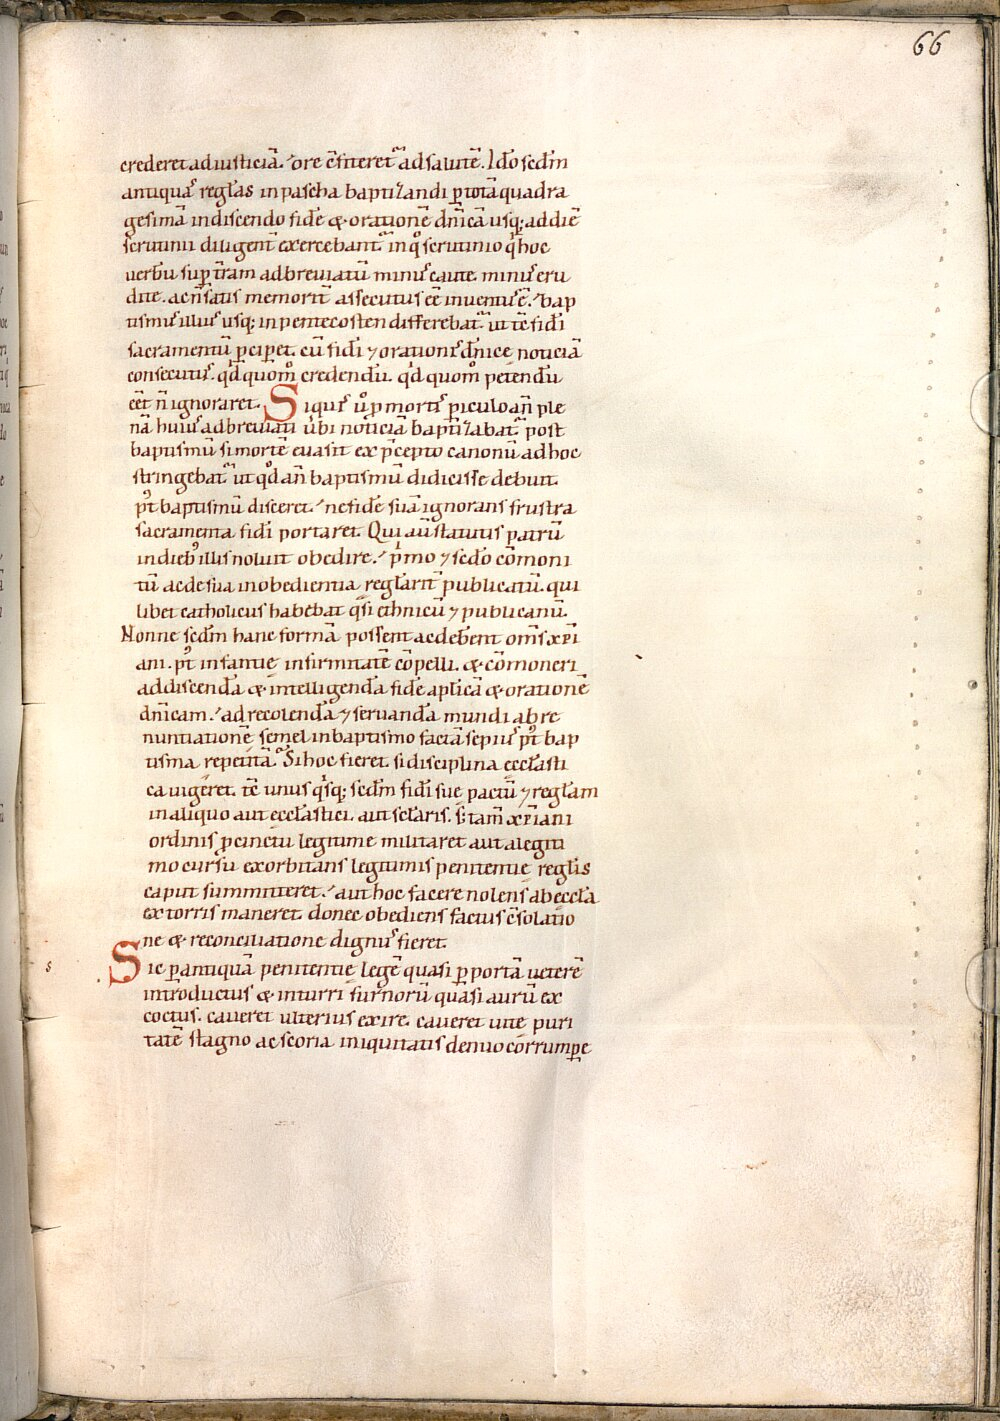 66
crederet ad iusticiā. ore c̄fiteret᷑ ad salutē. Ido scdm̄
antiquas regłas in pascha baptizandi p̱ totā quadra
gesimā in discendo fidē & orationē dn̄icā usq; ad diē
scrutinii diligent̄ exercebant᷑ in qͦ scrutinio q̇ hoc
uerbū sup̱ t̄ram adbreuiatū minus caute. minus eru
dite. ac n̄ satis memorit̄ assecutus eē inuentus ē. bap
tismus illius usq; in pentecosten differebat᷑ ut tē fidī
sacramentū p̱cip̱et. cū fidī ⁊ orationis dn̄ice noticiā
consecutus. qd̄ quom̊ credendū. qd̄ quom̊ petendū
eēt n̄ ignoraret. Siquis ů p̱ mortis p̱iculo an̄ ple
nā huius adbreuiati ūbi noticiā baptizabat᷑ post
baptismū si mortē euasit ex p̄cepto canonū ad hoc
stringebat᷑ ut qd̄ an̄ baptismū didicisse debuit.
pt᷒ baptismū disceret. ne fidē suā ignorans frustra
sacramenta fidī portaret. Qui aū statutis patrū
in dieb; illis noluit obedire. pͥmo ⁊ scdo cōmoni
tū ac de sua inobedientia regłarit̄ publicatū. qui
libet catholicus habebat qͣsi ethnicū ⁊ publicanū.
Nonne scdm̄ hanc formā possent ac debent om̄s xp̄i
ani. pt᷒ infantię infirmitatē cōpelli. & cōmoneri
ad discendā & intelligendā fidē aplicā & orationē
dn̄icam. ad recolendā ⁊ seruandā mundi abre
nuntiationē semel in baptismo factā sepius pt᷒ bap
tisma repetitā. Si hoc fieret. si disciplina ecclasti
ca uigeret. tē unus qͥsq; scdm̄ fidī suę pactū ⁊ regłam
in aliquo aut eccłastici. aut sclaris. s; tam̄ xp̄iani
ordinis p̱cinctu legitime militaret aut a legiti
mo cursu exorbitans legitimis penitentię regłis
caput summitteret. aut hoc facere nolens ab eccła
extorris maneret. donec obediens factus c̄solatio
ne & reconciliatione dignus fieret.
s
Sic p̱ antiquā penitentię legē quasi p̱ portā ueterē
introductus & in turri furnorū quasi aurū ex
coctus. caueret ulterius exire. caueret uite puri
tatē stagno ac scoria iniquitatis denuo corrump̱e